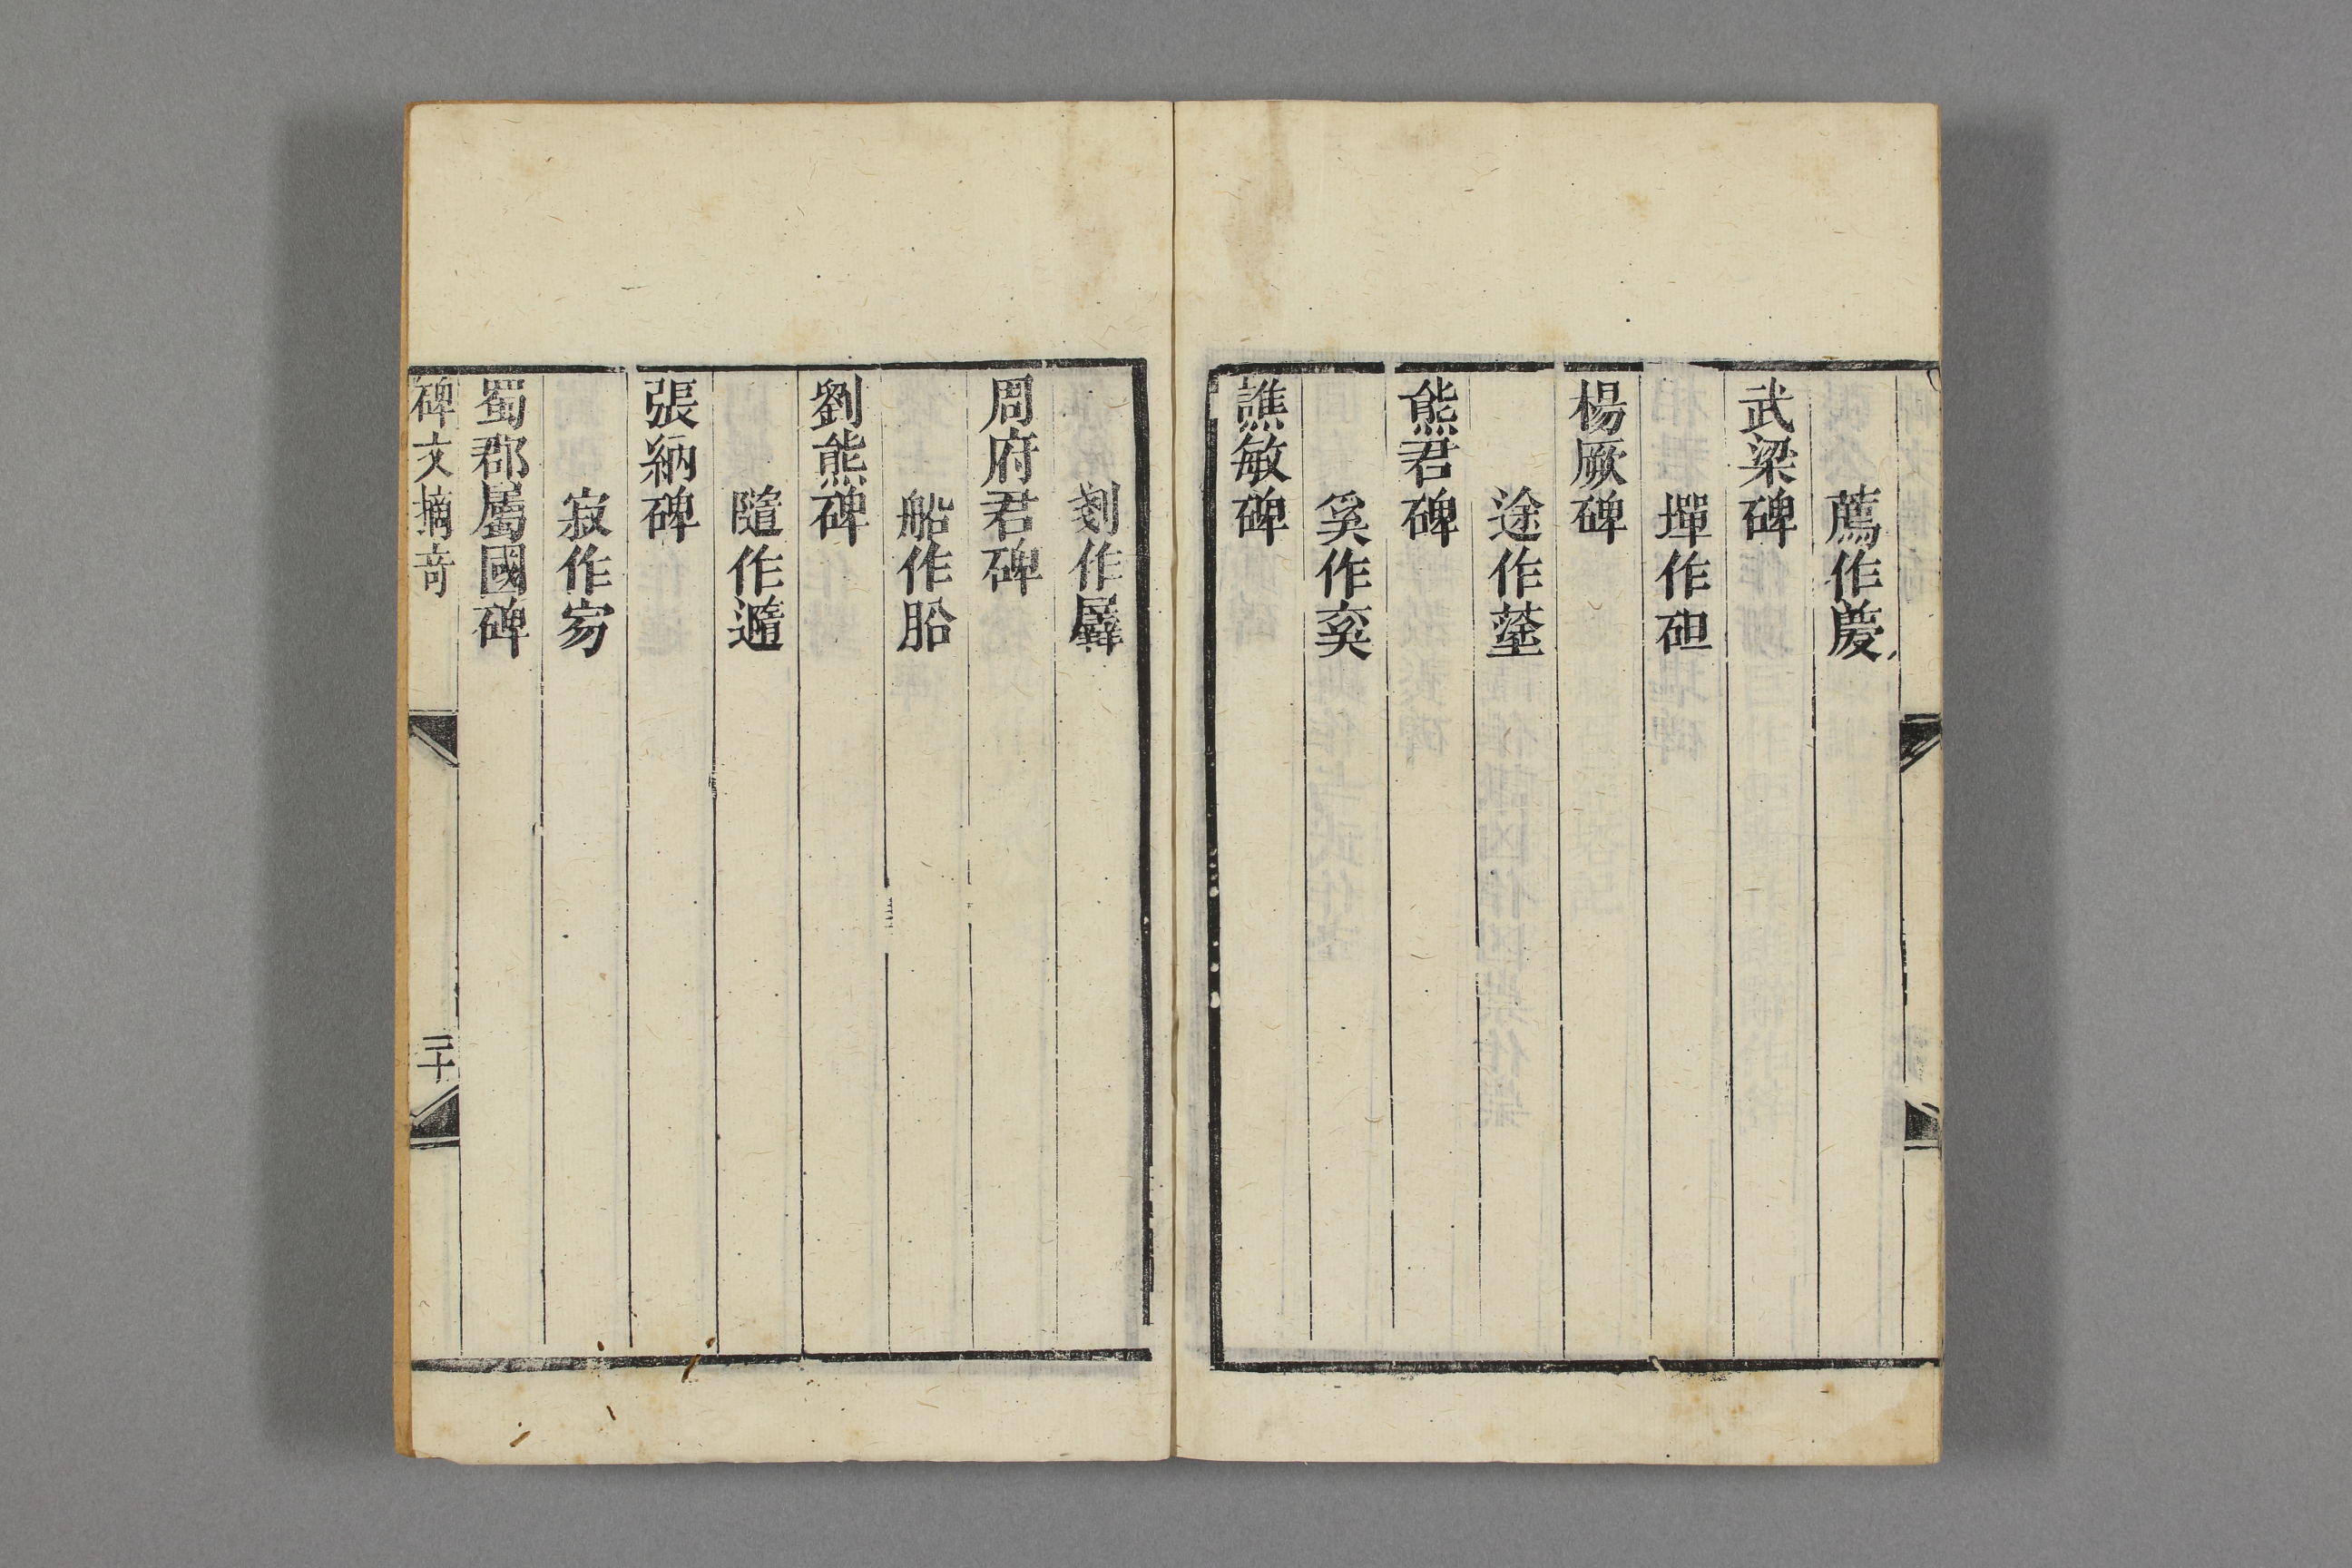 薦作慶
武梁碑
墠作䃪
楊厥碑
途作蒤
熊君碑
奚作
譙敏碑
剗作
周府君碑
船作船
劉熊碑
隨作
張納碑
寂作
蜀郡屬國碑
碑文摘奇
二十